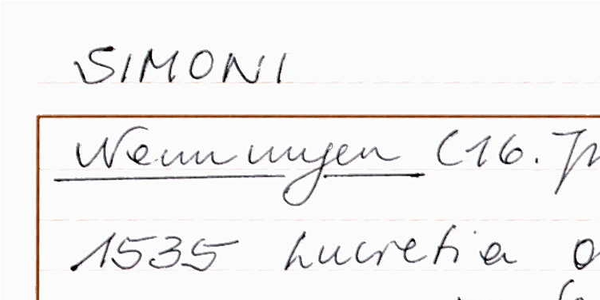 SIMONI
Nennungen (16. Jh
1535 Lucretia